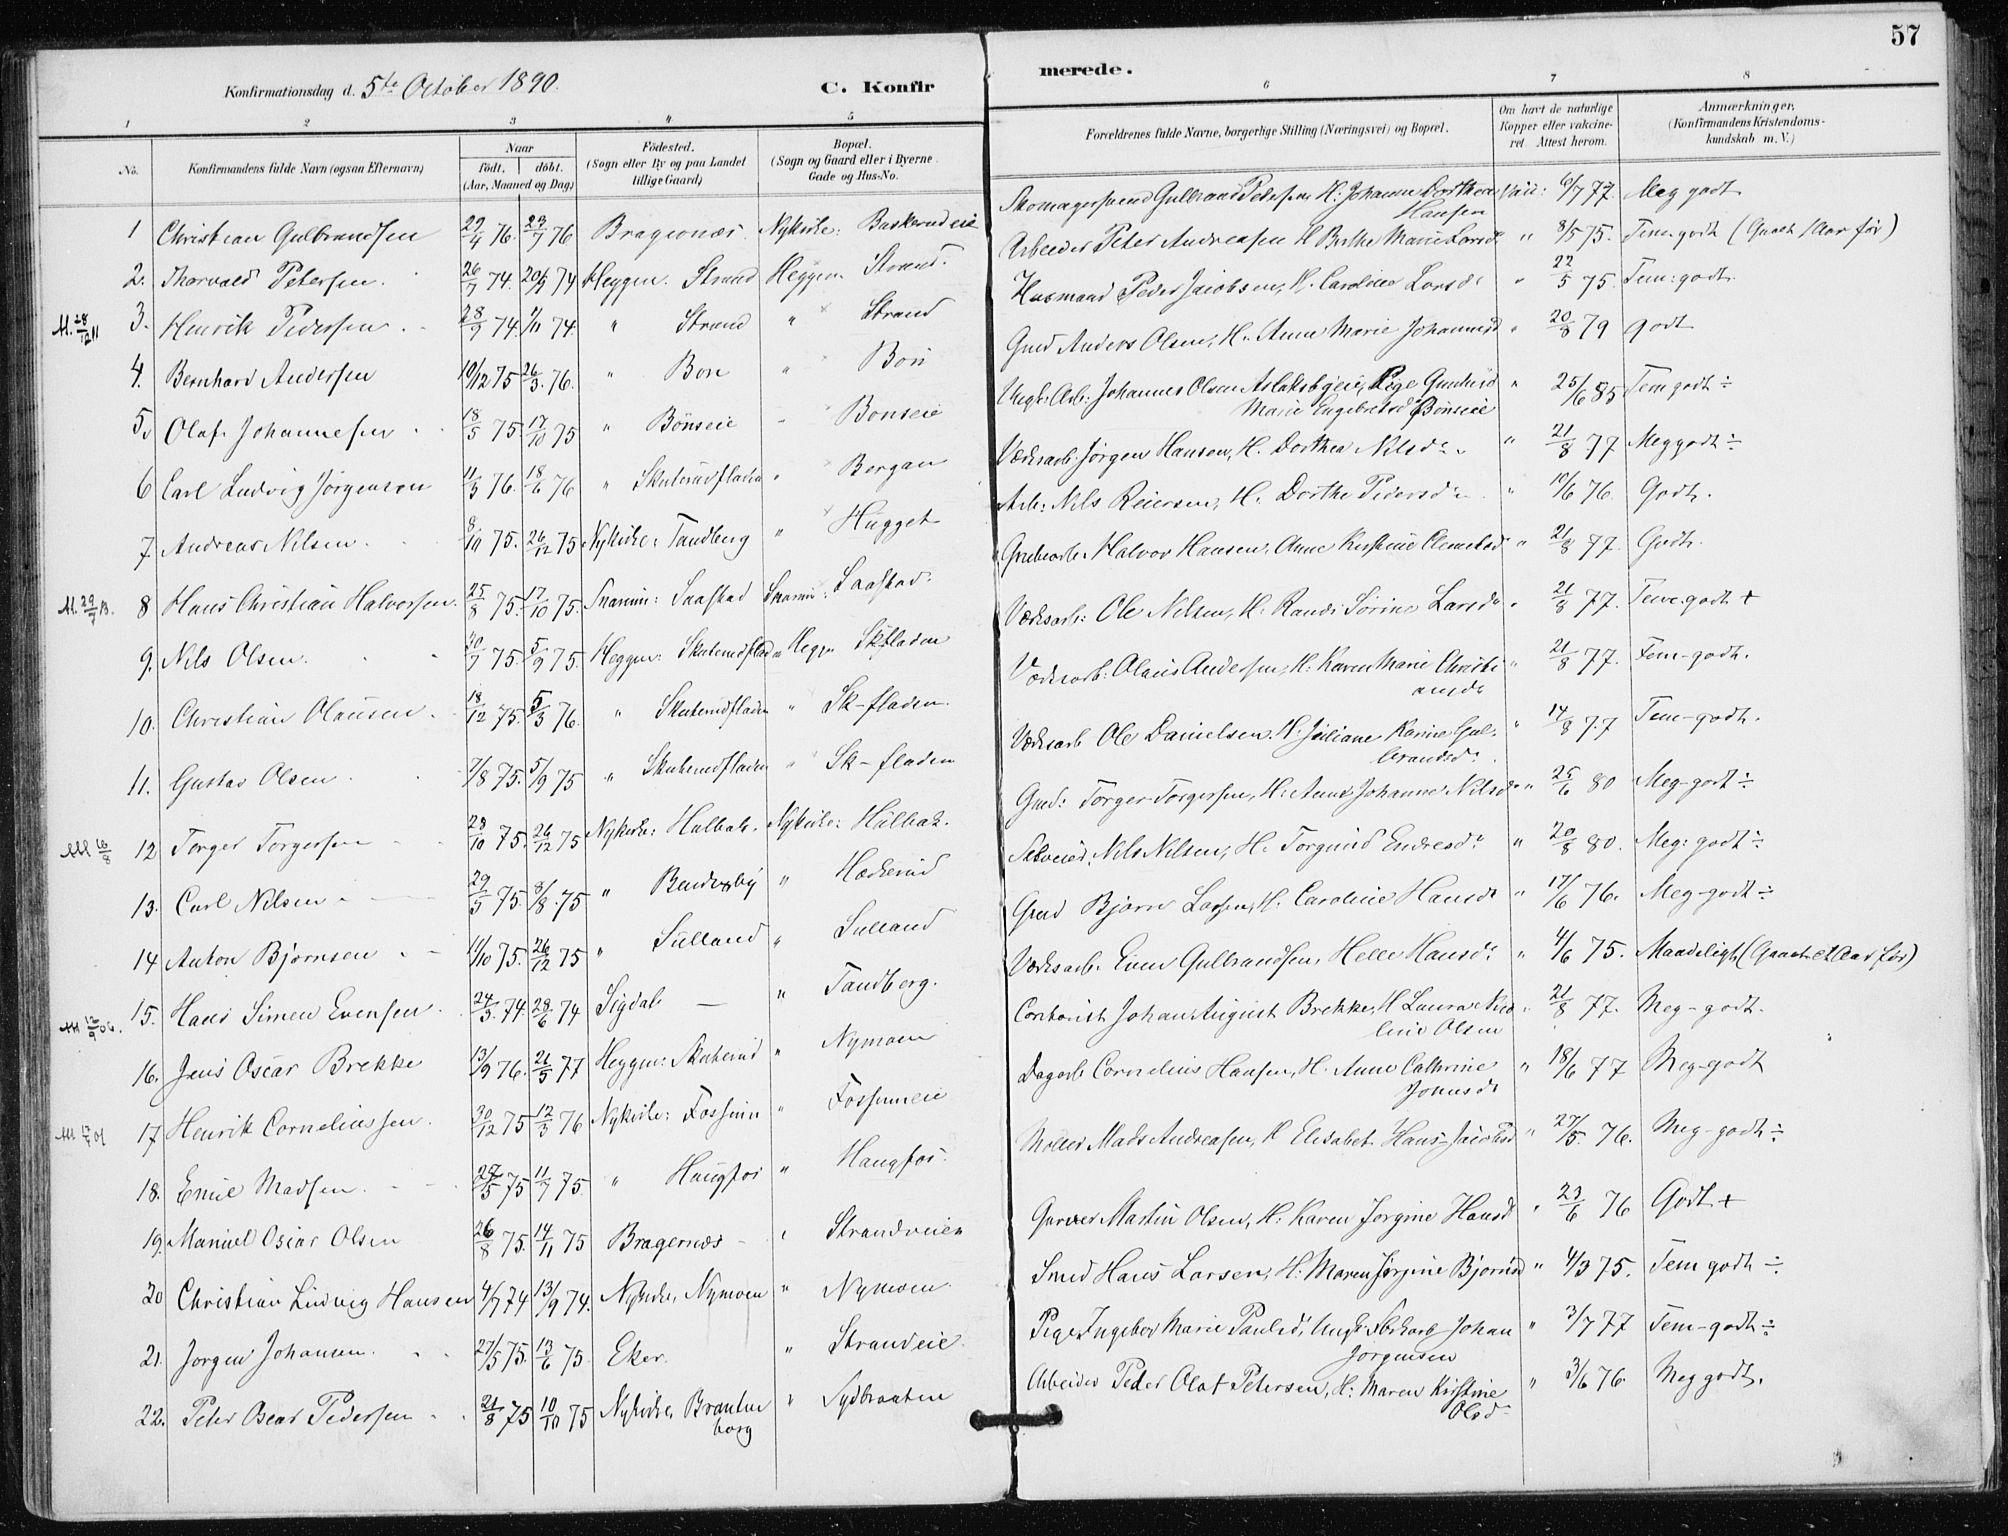 57
Konfirmationsdag d. 5te October 1890. C. Konfirmerede.
1 2 3 4 5 6 7 8
No. Konfirmandens fulde Navn (ogsaa Efternavn) Naar født. døbt. (Aar, Maaned og Dag) Fødested. (Sogn eller By og paa Landet tillige Gaard) Bopæl. (Sogn og Gaard eller i Byerne Gade og Hus-No. Forældrenes fulde Navne, borgerlige Stilling (Næringsvei) og Bopæl. Om havt de naturlige Kopper eller vakcineret. Attest herom. Anmærkninger. (Konfirmandens Kristendomskundskab m. V.)
1 Christian Gulbrandsen 22/4 76. 23/7 76 Bragernæs. Nykirke: Buskerudeie Skomagersvend Gulbrand Pedersen, H: Johanne Dorthea Hansen Vacc: 6/7 77. Meg godt
2. Thorvald Petersen. 26/7 74. 20/9 74 Heggen. Strand Heggen Strand. Arbeider Peter Andreasen H Berthe Marie Larsdr " 8/5 75. Tem. godt (Gaaet 1 Aar før)
3. Henrik Pedersen 28/9 74. 1/11 74. " Strand " Strand Husmand Peder Jacobsen, H. Caroline Larsdr " 22/5 75. Tem: godt.
4. Bernhard Andersen 10/12 75 26/3 76. " Bøn " Bøn Gmd Anders Olsen, H. Anne Marie Johannesd " 20/8 79 godt
5. Olaf Johannesen 18/5 75 17/10 75 " Bønseie " Bønseie Ungk. Arb. Johannes Olsen Aslaksbyeie, Pige Gunhild Marie Engebretsd Bønseie " 25/6 85 Tem godt ÷
6 Carl Ludvig Jörgensen 11/3 76. 18/6 76 " Skuterudfladen " Bergan Værksarb. Jørgen Hansen, H. Dorthea Nilsdr. " 21/8 77 Meg godt ÷
7. Andreas Nilsen. 8/10 75. 26/12 75 Nykirke: Tandberg " Hugget Arb: Nils Reiersen, H. Dorthe Pedersdr " 10/6 76. Godt.
8 Hans Christian Halvorsen. 25/8 75. 17/10 75. Snarum: Saastad Snarum: Saastad. Grubearb. Halvor Hansen. Anne Kirstine Clemetsd " 21/8 77. Godt.
9. Nils Olsen. 30/7 75. 5/9 75. Heggen: Skuterudfladen Heggen Skfladen Værksarb: Ole Nilsen, H. Randi Sørine Larsdr " 21/8 77. Temc. godt +
10. Christian Olausen. 18/12 75. 5/3 76. " Skuterudfladen " Sk-fladen. Værksarb: Olaus Andersen, H. Karen Marie Christiansdr " 21/8 77. Tem-godt.
11. Gustav Olsen 7/8 75. 5/9 75 " Skuterudfladen " Sk-fladen Værksarb Ole Danielsen. H. Juliane Karine Gulbrandsdr. " 14/8 77 Tem-godt.
12 Torger Torgersen 28/10 75. 26/12 75 Nykirke: Hulbak. Nykirke: Hulbak. Gmd: Torger Torgersen, H. Anne Johanne Nilsdr " 25/6 80 Meg-godt ÷
13. Carl Nilsen 29/5 75. 8/8 75 " Benderby " Hækerud Selveier. Nils Nilsen, H. Torgund Endresdr " 20/8 80. Meg: godt ÷
14 Anton Bjørnsen 11/10 75. 26/12 75 " Sulland " Sulland Gmd Bjørn Larsen, H. Caroline Hansdr " 17/6 76. Meg-godt ÷
15. Hans Simen Evensen 24/3 74. 28/6 74 Sigdal — " Tandberg. Værksarb. Even Gulbrandsen, Helle Hansdr " 4/6 75. Maadeligt (Gaaet et Aar før)
16. Jens Oscar Brekke 13/9 76. 21/5 77 Heggen: Skuterud " Nymoen Contorist Johan August Brekke, H Laura Karoline Olsen " 21/8 77. Meg-godt.
17 Henrik Corneliussen. 30/12 75 12/3 76 Nykirke: Fossum " Fossumeie Dagarb Cornelius Hansen, H. Anne Cathrine Jonasdr " 18/6 77 Meg-godt
18. Emil Madsen. 27/5 75 11/7 75. " Haugfos " Haugfos. Møller Mads Andreasen, H Elisabet Hans-Jacobsd " 27/5 76. Meg-godt ÷
19 Manuel Oscar Olsen 26/8 75. 14/11 75 Bragernæs - " Strandveien Garver Martin Olsen, H. Karen Jørgine Hansd " 23/6 76 Godt +
20 Christian Ludvig Hansen 4/7 74 13/9 74. Nykirke, Nymoen " Nymoen Smed Hans Larsen, H. Maren Jørgine Bjørnsd " 4/3 75. Tem godt ÷.
21. Jorgen Johansen. 27/5 75. 13/6 75. Eker. " Strandeie. Pige Ingebor Marie Paulsd, Ungk. Johan Jørgensen " 3/7 77 Tem-godt ÷
22. Peter Oscar Pedersen 21/8 75 10/10 75 Nykirke, Brantenborg " Sydbraaten Arbeider Peder Olaf Petersen, H: Maren Kirstine Olsdr " 3/6 76. Meg godt.